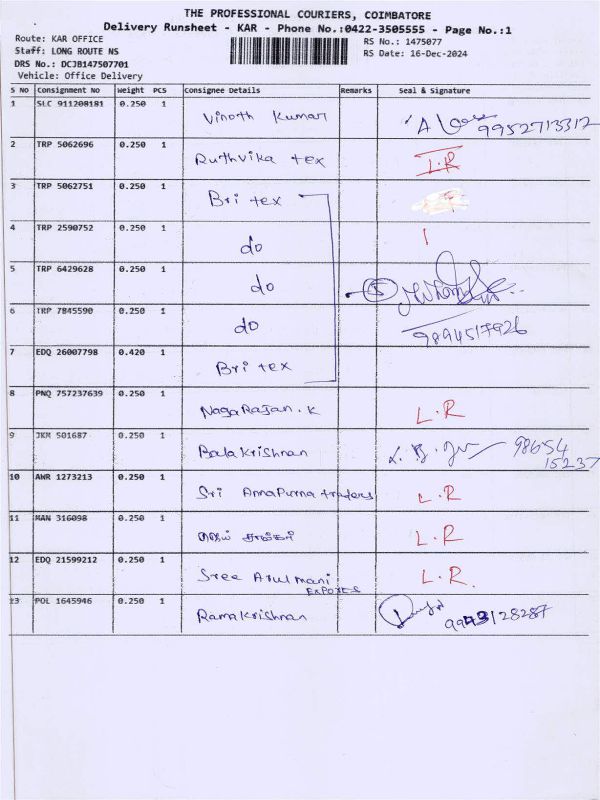 THE PROFESSIONAL COURIERS, COIMBATORE
Delivery Runsheet - KAR - Phone No.:0422-3505555 - Page No.:1
Route: KAR OFFICE RS No.: 1475077
Staff: LONG ROUTE NS RS Date: 16-Dec-2024
DRS No.: DCJB147507701
Vehicle: Office Delivery
S NO Consignment No Weight PCS Consignee Details Remarks Seal & Signature
1 SLC 911208181 0.250 1 Vinoth Kumar 9952713312
2 TRP 5062696 0.250 1 Ruthvika tex L.R
3 TRP 5062751 0.250 1 Bri tex
4 TRP 2590752 0.250 1 do
5 TRP 6429628 0.250 1 do 5
6 TRP 7845590 0.250 1 do 9894517926
7 EDQ 26007798 0.420 1 Bri tex
8 PNQ 757237639 0.250 1 NagaRajan.K L.R
9 JKM 501687 0.250 1 Balakrishnan 98654
15237
10 AWR 1273213 0.250 1 Sri Annapurna traders L.R
11 MAN 316098 0.250 1 L.R
12 EDQ 21599212 0.250 1 Sree Arulmani L.R.
EXPORTS
13 POL 1645946 0.250 1 Ramakrishnan 9943128287